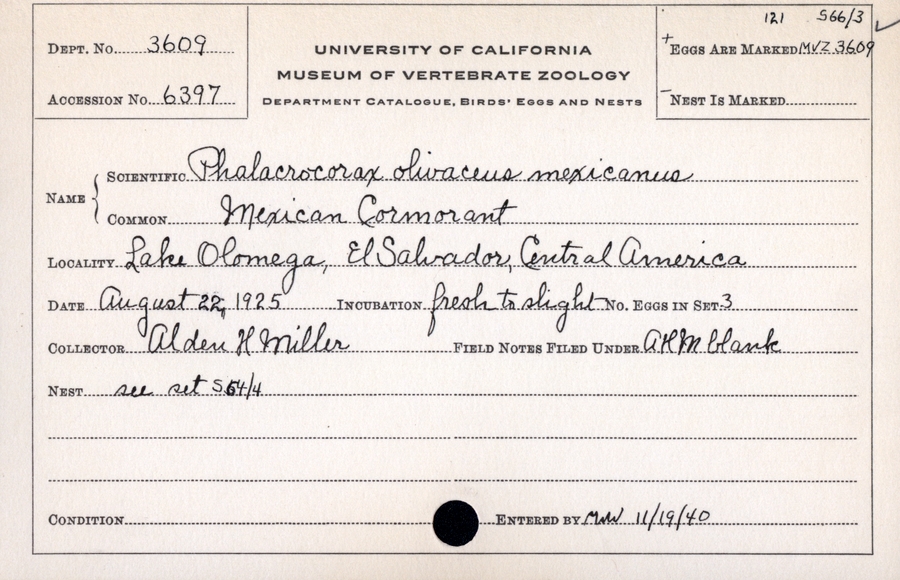 121 S66/3
DEPT. No. 3609
UNIVERSITY OF CALIFORNIA
+EGGS ARE MARKED MVZ 3609
MUSEUM OF VERTEBRATE ZOOLOGY
ACCESSION No. 6397
DEPARTMENT CATALOGUE, BIRDS' EGGS AND NESTS
-NEST IS MARKED
NAME { SCIENTIFIC Phalacrocorax olivaceus mexicanus
COMMON Mexican Cormorant
LOCALITY Lake Olomega, El Salvador, Central America
DATE August 22, 1925 INCUBATION fresh to slight No. EGGS IN SET 3
COLLECTOR Alden H Miller FIELD NOTES FILED UNDER AHM blank
NEST see set S64/4
CONDITION ENTERED BY MW 11/19/40